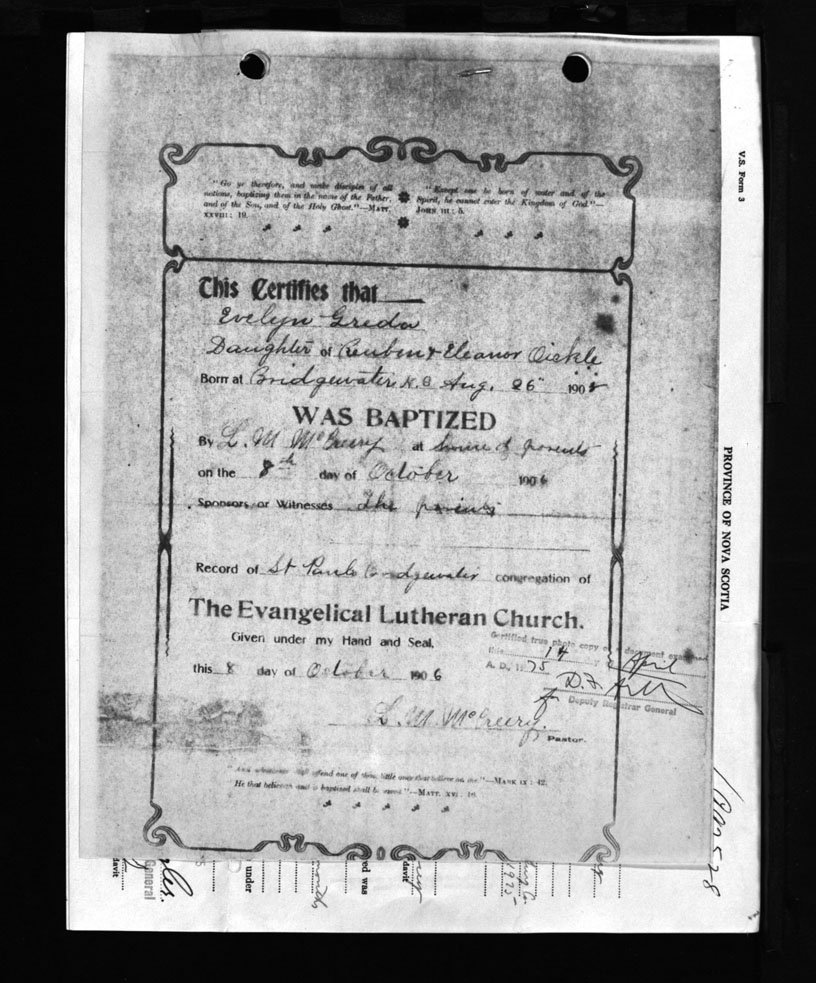 "Go ye therefore, and make disciples of all
nations, baptizing them in the name of the Father,
and of the Son, and of the Holy Ghost."—MATT.
XXVIII: 19.
"Except one be born of water and of the
Spirit, he cannot enter the Kingdom of God."—
JOHN III: 5.
This Certifies that
Evelyn Greda
Daughter of Reuben & Eleanor Oickle
Born at Bridgewater, N.S Aug. 26" 190
WAS BAPTIZED
By L. M McCreery at home of parents
on the 8th day of October 1906
Sponsors or Witnesses The parents
Record of St Pauls Bridgewater congregation of
The Evangelical Lutheran Church.
Given under my Hand and Seal,
this 8 day of October 1906
L. M. McCreery.
Pastor.
Certified true photo copy of a document
this 14 April
A. D., 1975
D.F.
for Deputy Registrar General
offend one of these little ones that believe on me"—MARK IX: 42.
He that believes and is baptized shall be saved"—MATT. XVI: 16.
V.S. Form 3
PROVINCE OF NOVA SCOTIA
528
davit
General
under
months
ed was
davit
1975